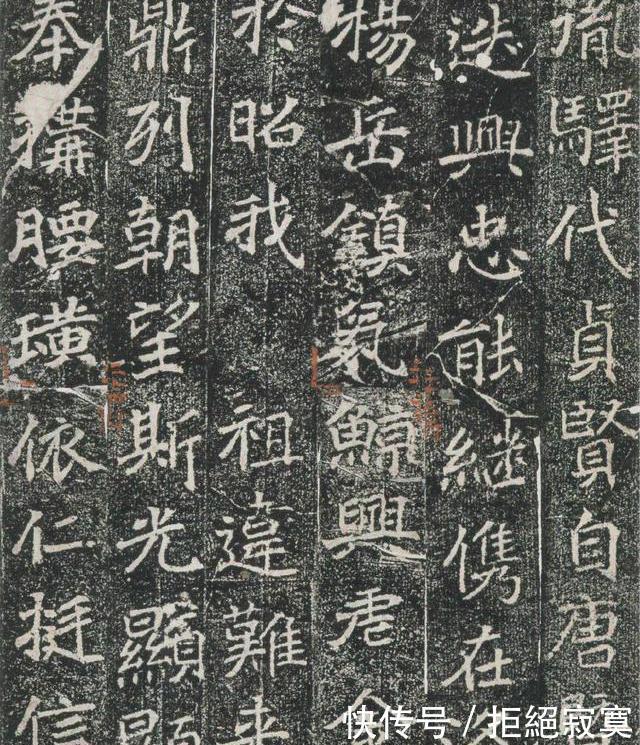 胤驛代貞賢自唐
迭興忠能繼儁在
楊岳鎮氣鯨興君
於昭我祖違難來
鼎列朝望斯光顯顯
奉構腰璜依仁挺信
快传号／拒絕寂寞